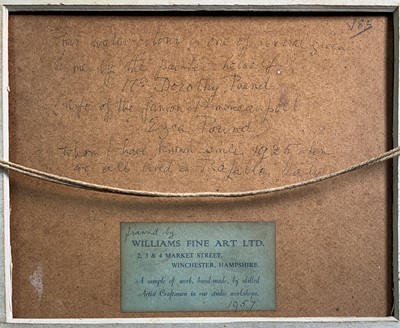 £65
This water-colour is one of several given
to me by the painter herself
Mrs Dorothy Pound
Wife of the famous American poet
Ezra Pound
whom I have known since 1925 when
we all lived in Rapallo, Italy
framed by
WILLIAMS FINE ART LTD.
2, 3 & 4 MARKET STREET,
WINCHESTER, HAMPSHIRE.
A sample of work, hand-made, by skilled
Artist Craftsmen in our studio workshops.
1957